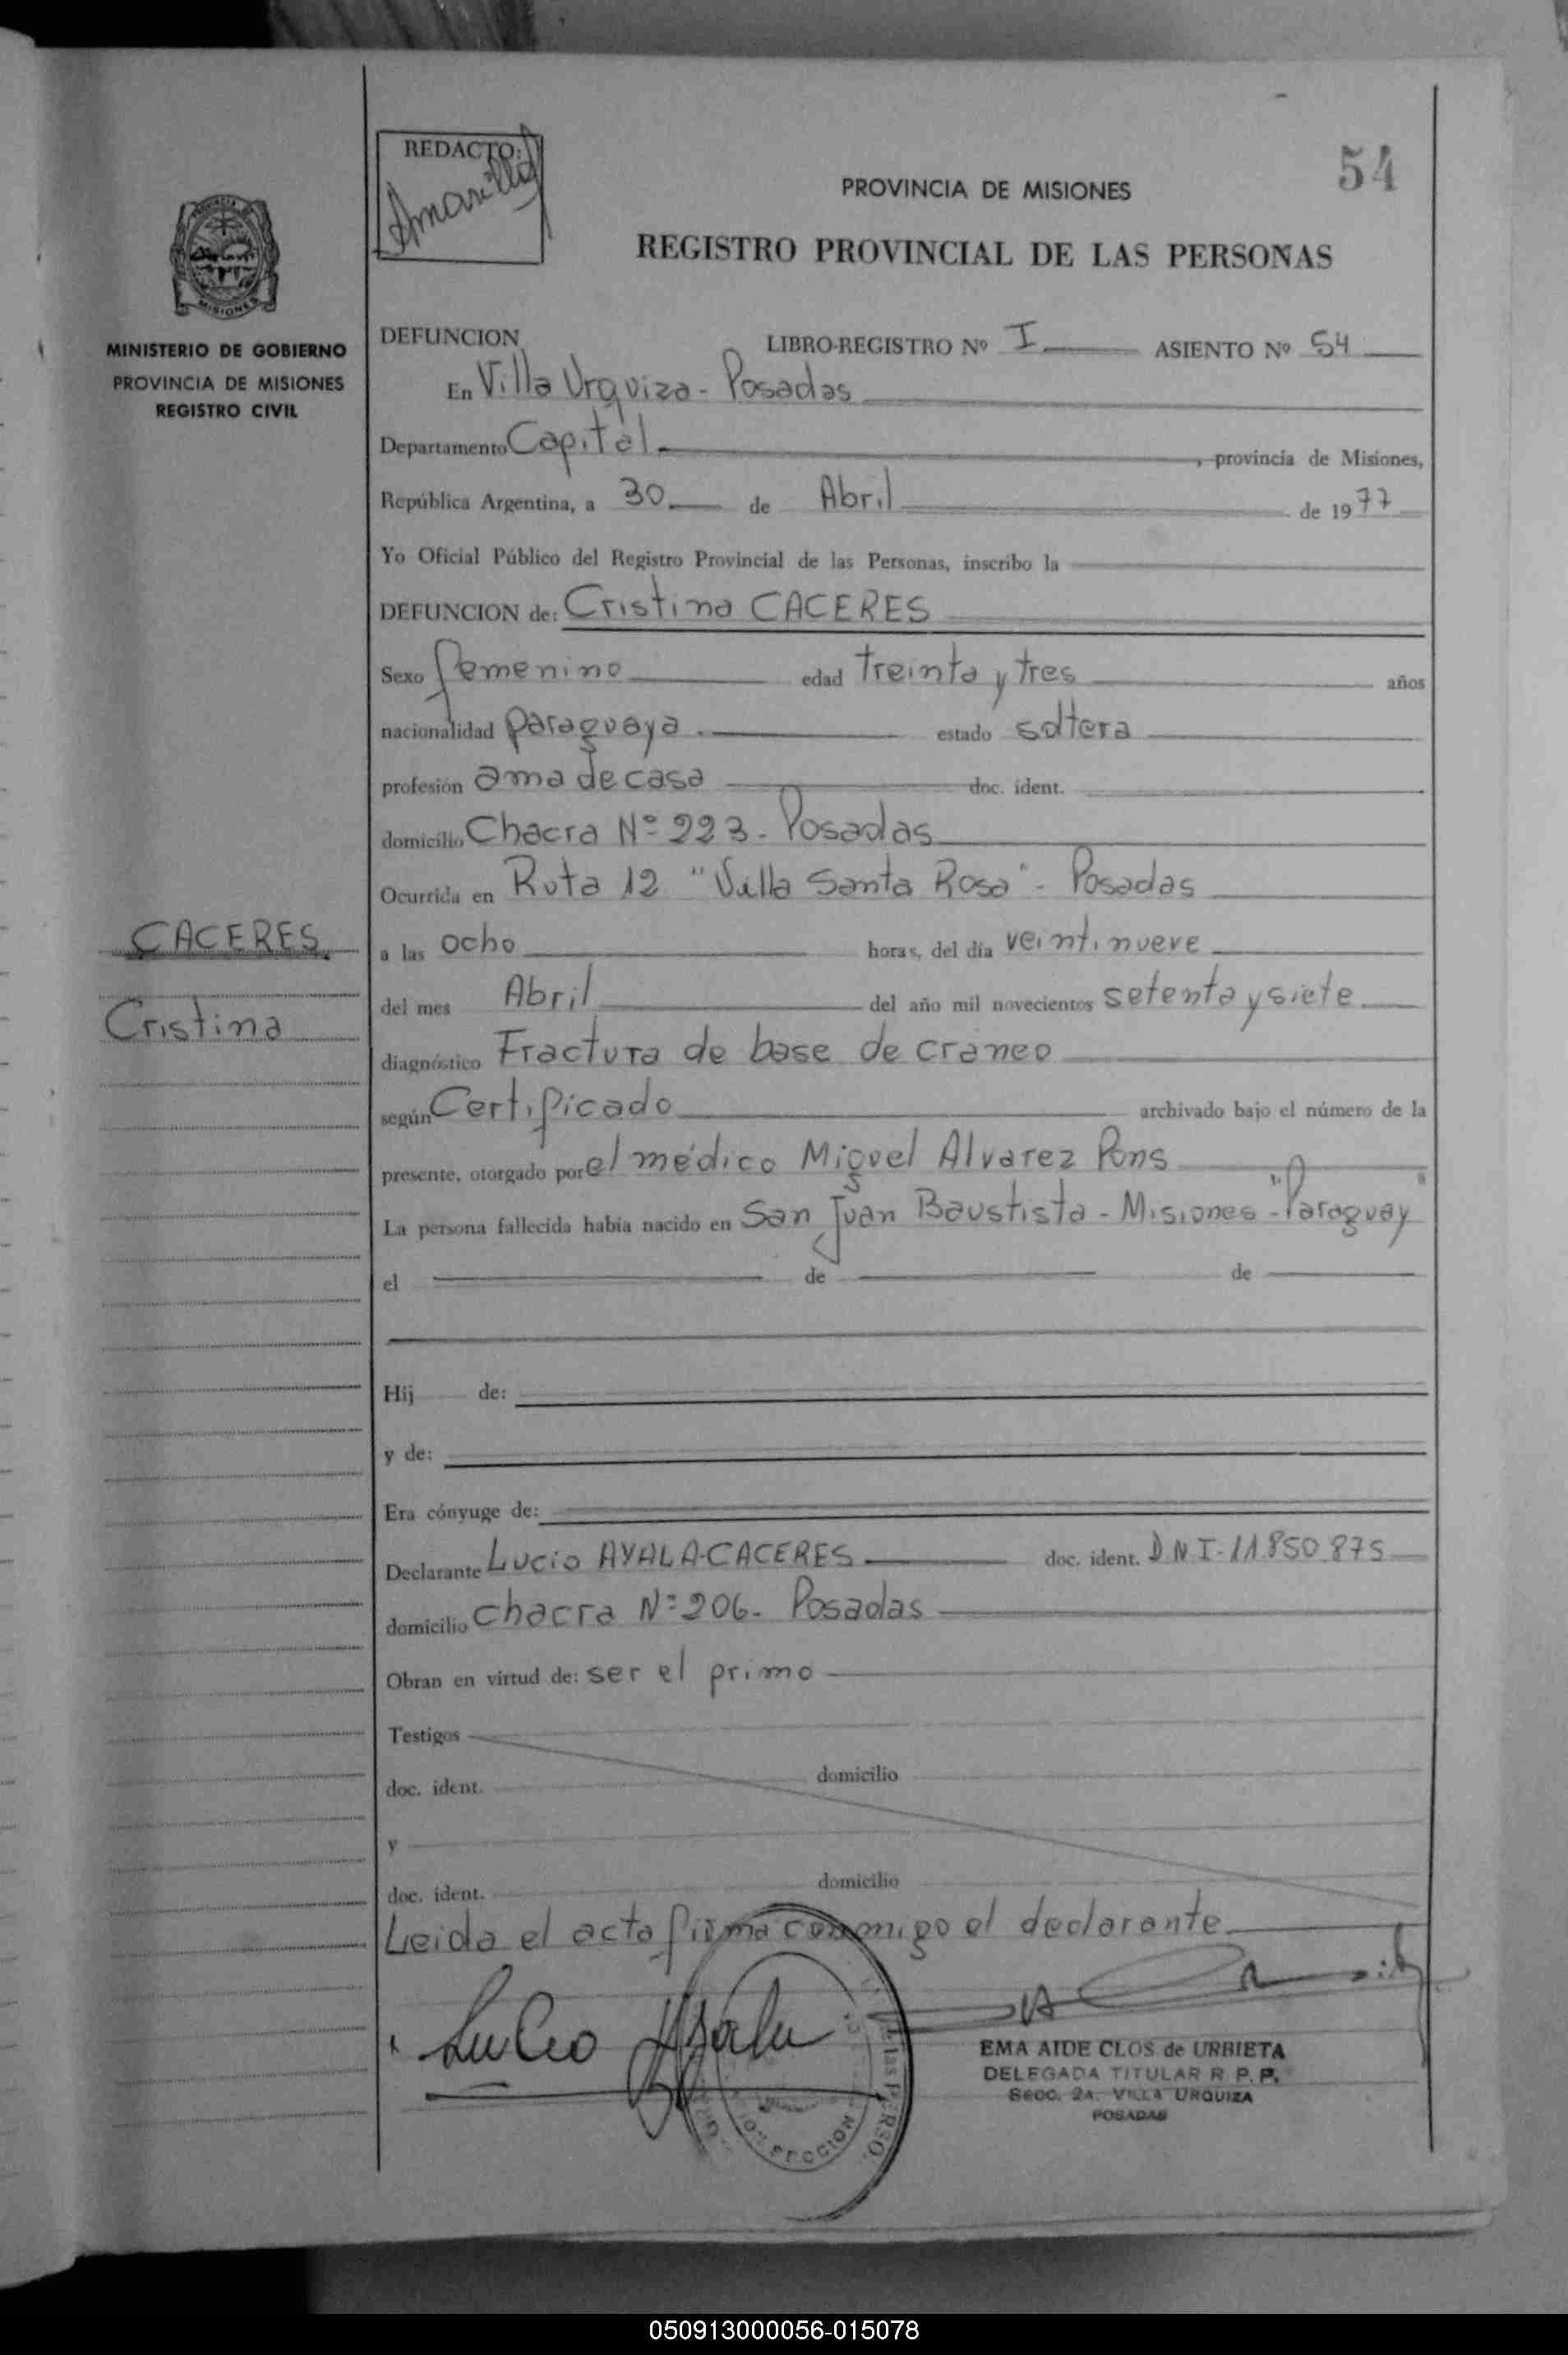 REDACTO:
Amarilla
54
PROVINCIA DE MISIONES
REGISTRO PROVINCIAL DE LAS PERSONAS
MISIONES
MINISTERIO DE GOBIERNO
PROVINCIA DE MISIONES
REGISTRO CIVIL
DEFUNCION LIBRO-REGISTRO Nº I ASIENTO Nº 54
En Villa Urquiza - Posadas
Departamento Capital , provincia de Misiones,
República Argentina, a 30 de Abril de 1977
Yo Oficial Público del Registro Provincial de las Personas, inscribo la
DEFUNCION de: Cristina CACERES
Sexo femenino edad treinta y tres años
nacionalidad paraguaya estado soltera
profesión ama de casa doc. ident.
domicilio Chacra Nº 223 - Posadas
Ocurrida en Ruta 12 "Villa Santa Rosa" - Posadas
CACERES
Cristina
a las ocho horas, del día veintinueve
del mes Abril del año mil novecientos setenta y siete
diagnóstico Fractura de base de craneo
según Certificado archivado bajo el número de la
presente, otorgado por el médico Miguel Alvarez Pons
La persona fallecida había nacido en San Juan Baustista - Misiones - "Paraguay"
el de de
Hij de:
y de:
Era cónyuge de:
Declarante Lucio AYALA-CACERES doc. ident. D.N.I. 11.850.875
domicilio chacra Nº 206 - Posadas
Obran en virtud de: ser el primo
Testigos
doc. ident. domicilio
y
doc. ident. domicilio
Leida el acta firma conmigo el declarante
Lucio Ayala
EMA AIDE CLOS de URBIETA
DELEGADA TITULAR R. P. P.
Secc. 2A. VILLA URQUIZA
POSADAS
050913000056-015078